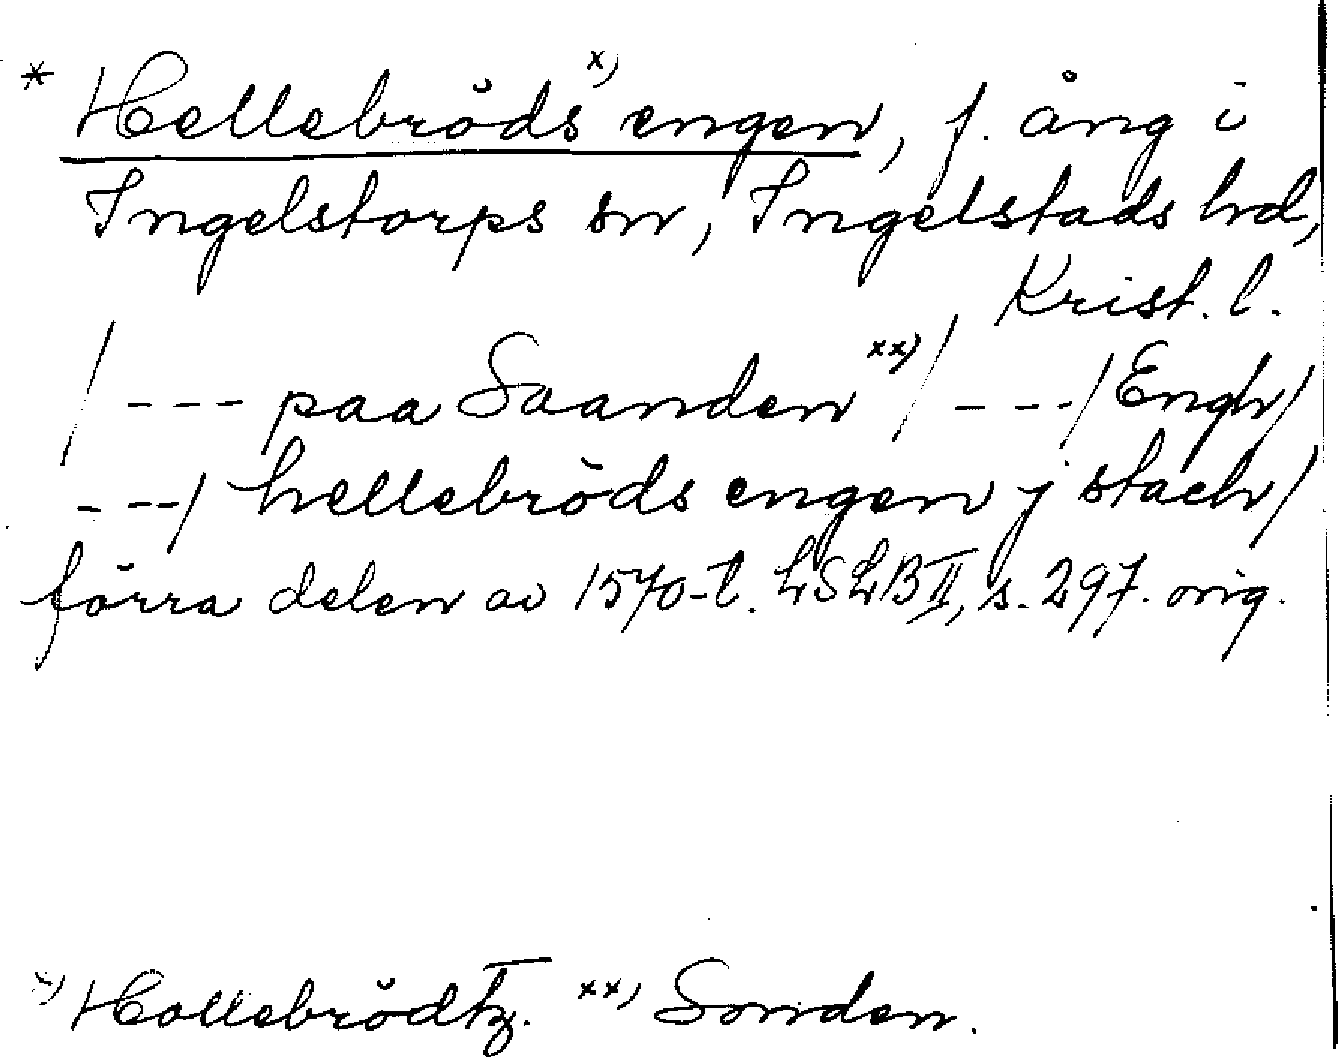 * Hellebröds x) engen, f. äng i
Ingelstorps sn, Ingelstads hd,
Krist. l.
/ --- paa Saanden xx) / ---/ Engh/
---/ hellebröds engen j stach/
förra delen av 1570-t. LSLB II, s. 297. orig.
x) Hollebrödtz. xx) Sonden.